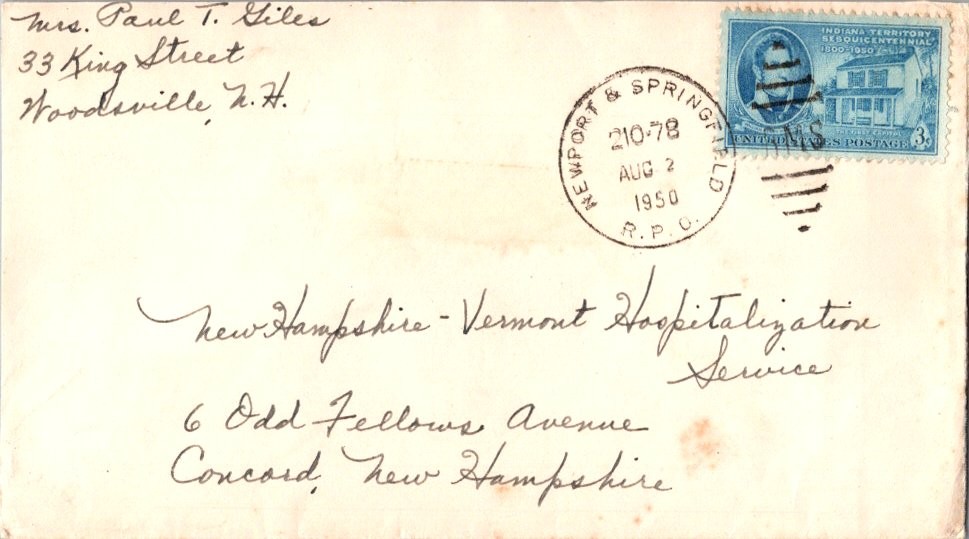 Mrs. Paul T. Giles
33 King Street
Woodsville, N.H.
INDIANA TERRITORY
SESQUICENTENNIAL
1800-1950
THE FIRST CAPITOL
UNITED STATES POSTAGE 3¢
NEWPORT & SPRINGFIELD
210-78
AUG 2
1950
R.P.O.
RMS
New Hampshire - Vermont Hospitalization
Service
6 Odd Fellows Avenue
Concord, New Hampshire